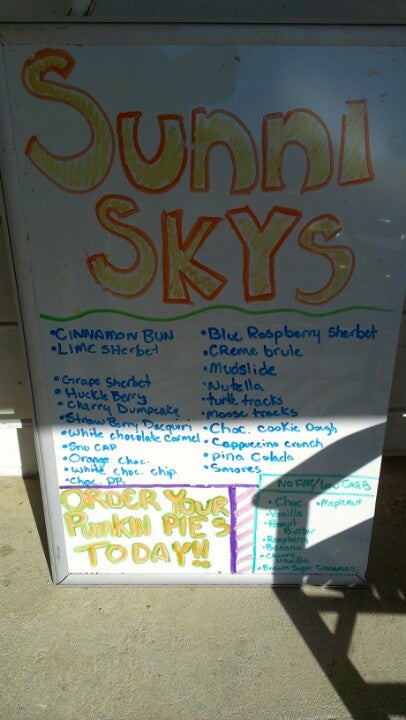 Sunni
SKYS
• CINNAMON BUN
• LIME SHerbet
• Grape Sherbet
• Huckle Berry
• Cherry Dumpcake
• StrawBerry Dacquiri
• White chocolate Carmel
• Sno CAP
• Orange Choc.
• White choc. chip
• Choc. PB
• Blue Raspberry sherbet
• CReme brule
• Mudslide
• Nutella
• turtle tracks
• moose tracks
• Choc. cookie Dough
• Cappuccino crunch
• pina Colada
• Smores
ORDER YOUR
PUMKIN PIE'S
TODAY!!
NO FAT/LOW CARB
• Choc.
• Vanilla
• Peanut
Butter
• Raspberry
• Banana
• Cherry
Vanilla
• Brown Sugar Cinnamon
• Maplenut